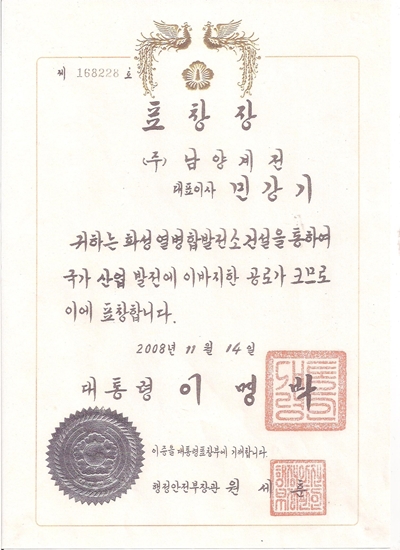 제 168228 호
표창장
(주) 남양계전
대표이사 민강기
귀하는 화성열병합발전소건설을 통하여
국가 산업 발전에 이바지한 공로가 크므로
이에 표창합니다.
2008년 11월 14일
대통령 이명박
이 증을 대통령표창부에 기재합니다.
행정안전부장관 원세훈